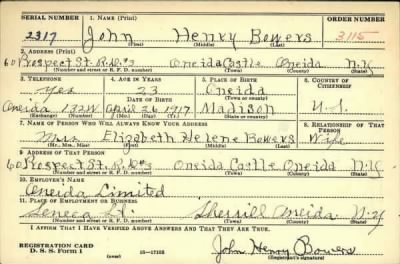 SERIAL NUMBER 1. NAME (Print) ORDER NUMBER
2317 John Henry Bowers 3115
(First) (Middle) (Last)
2. ADDRESS (Print)
60 Prospect St. R.D.#3 Oneida Castle Oneida N.Y.
(Number and street or R. F. D. number) (Town) (County) (State)
3. TELEPHONE 4. AGE IN YEARS 5. PLACE OF BIRTH 6. COUNTRY OF CITIZENSHIP
Yes 23 Oneida
DATE OF BIRTH (Town or county)
Oneida 132W April 26 1917 Madison U.S.
(Exchange) (Number) (Mo.) (Day) (Yr.) (State or country)
7. NAME OF PERSON WHO WILL ALWAYS KNOW YOUR ADDRESS 8. RELATIONSHIP OF THAT PERSON
Mrs Elizabeth Helene Bowers Wife
(Mr., Mrs., Miss) (First) (Middle) (Last)
9. ADDRESS OF THAT PERSON
60 Prospect St. R.D.#3 Oneida Castle Oneida N.Y.
(Number and street or R. F. D. number) (Town) (County) (State)
10. EMPLOYER'S NAME
Oneida Limited
11. PLACE OF EMPLOYMENT OR BUSINESS
Seneca St. Sherrill Oneida N.Y.
(Number and street or R. F. D. number) (Town) (County) (State)
I AFFIRM THAT I HAVE VERIFIED ABOVE ANSWERS AND THAT THEY ARE TRUE.
REGISTRATION CARD
D. S. S. Form 1 (over) 16—17105 John Henry Bowers
(Registrant's signature)